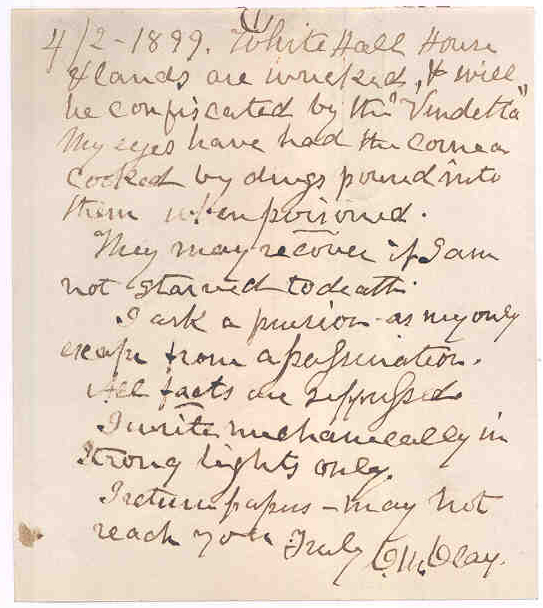 4/2-1899. White Hall House
& lands are wrecked, & will
be confiscated by the "Vendetta"
My eyes have had the cornea
cooked by drugs poured into
them when poisoned.
They may recover if I am
not starved to death.
I ask a pension - as my only
escape from assassination.
All facts are suppressed
I write mechanically in
strong lights only.
I return papers - may not
reach you. Truly C.M. Clay.